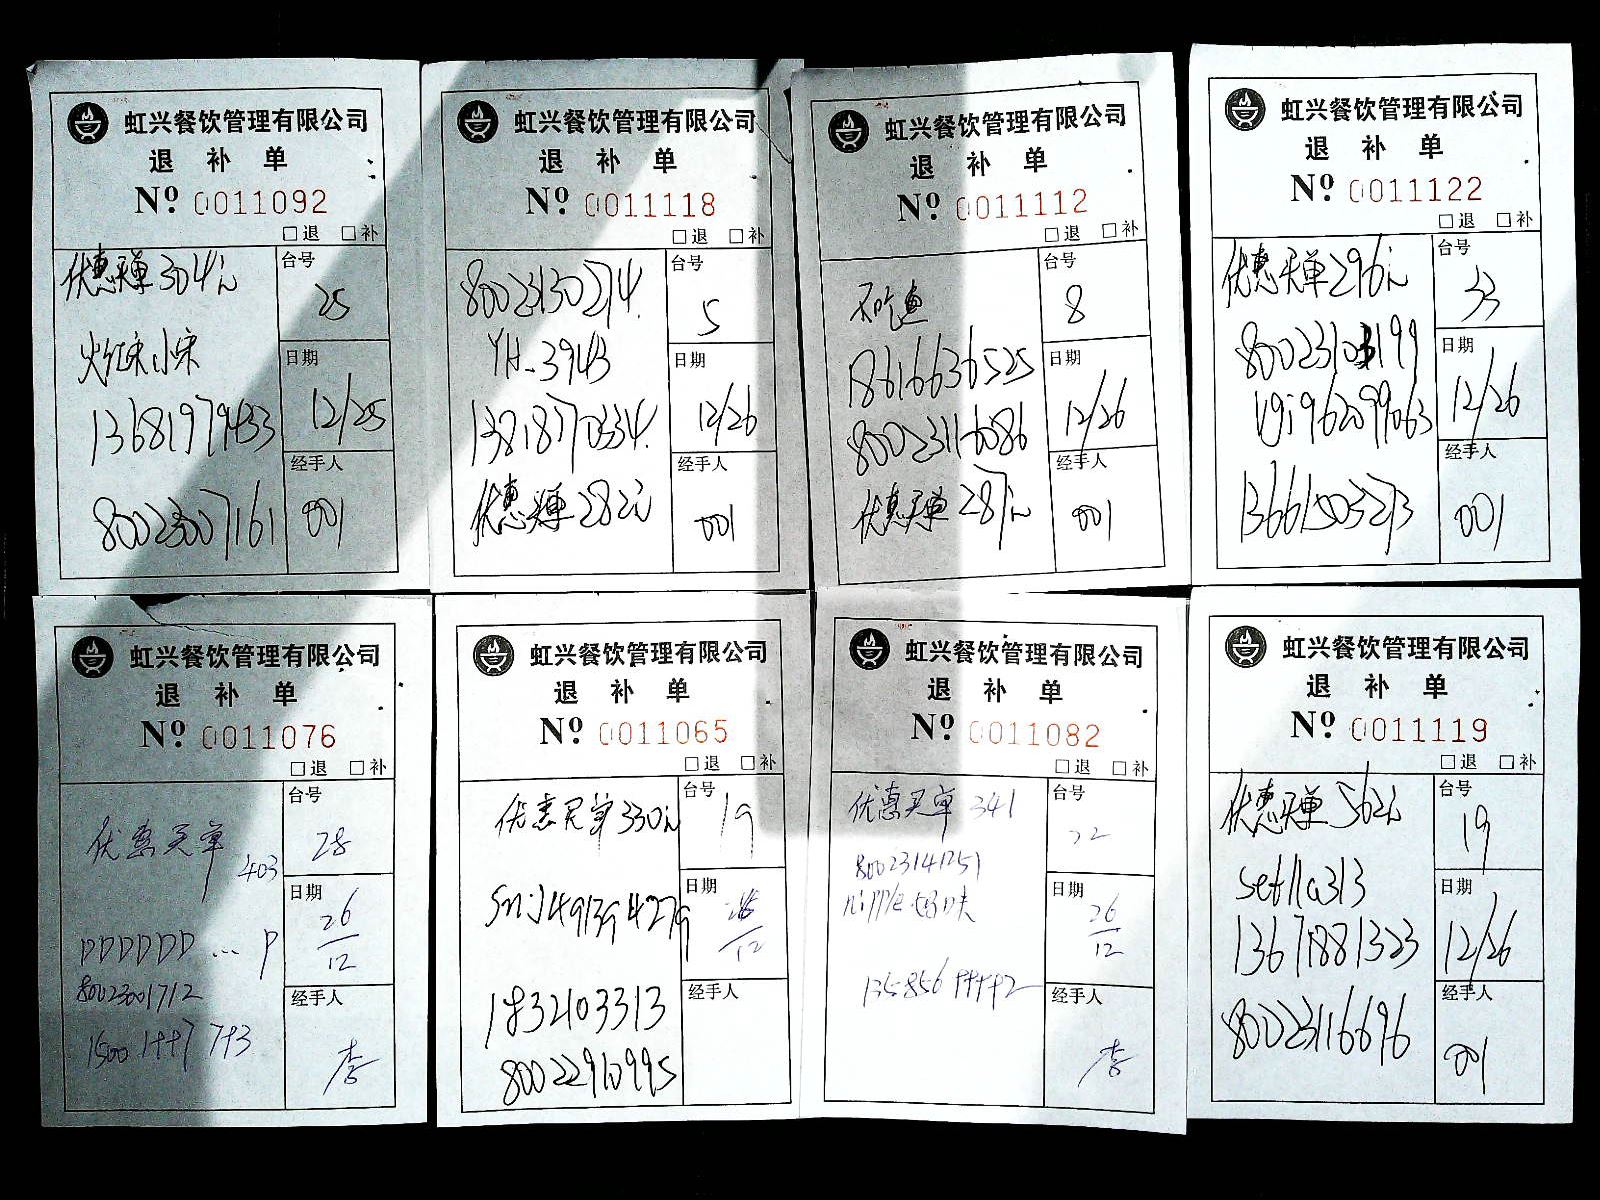 虹兴餐饮管理有限公司
退 补 单
Nº 0011092
□退 □补
优惠买单304元
火红宋小宋
13681979433
80023007161
台号
25
日期
12/25
经手人
001
虹兴餐饮管理有限公司
退 补 单
Nº 0011118
□退 □补
80023130274.
YH_3943
13818770334.
优惠买单282元
台号
5
日期
12/26
经手人
001
虹兴餐饮管理有限公司
退 补 单
Nº 0011112
□退 □补
不吃鱼
18616636525
80023116086
优惠买单287元
台号
8
日期
12/26
经手人
001
虹兴餐饮管理有限公司
退 补 单
Nº 0011122
□退 □补
优惠买单296元
13661503273
台号
33
日期
12/26
经手人
001
虹兴餐饮管理有限公司
退 补 单
Nº 0011076
□退 □补
优惠买单
403
DDDDDD ... P
80023001712
台号
28
日期
26/12
经手人
李
虹兴餐饮管理有限公司
退 补 单
Nº 0011065
□退 □补
优惠买单330元
80022910995
台号
19
日期
经手人
虹兴餐饮管理有限公司
退 补 单
Nº 0011082
□退 □补
优惠买单 341
80023141251
台号
22
日期
26/12
经手人
李
虹兴餐饮管理有限公司
退 补 单
Nº 0011119
□退 □补
优惠买单562元
13671881323
80023116696
台号
19
日期
12/26
经手人
001